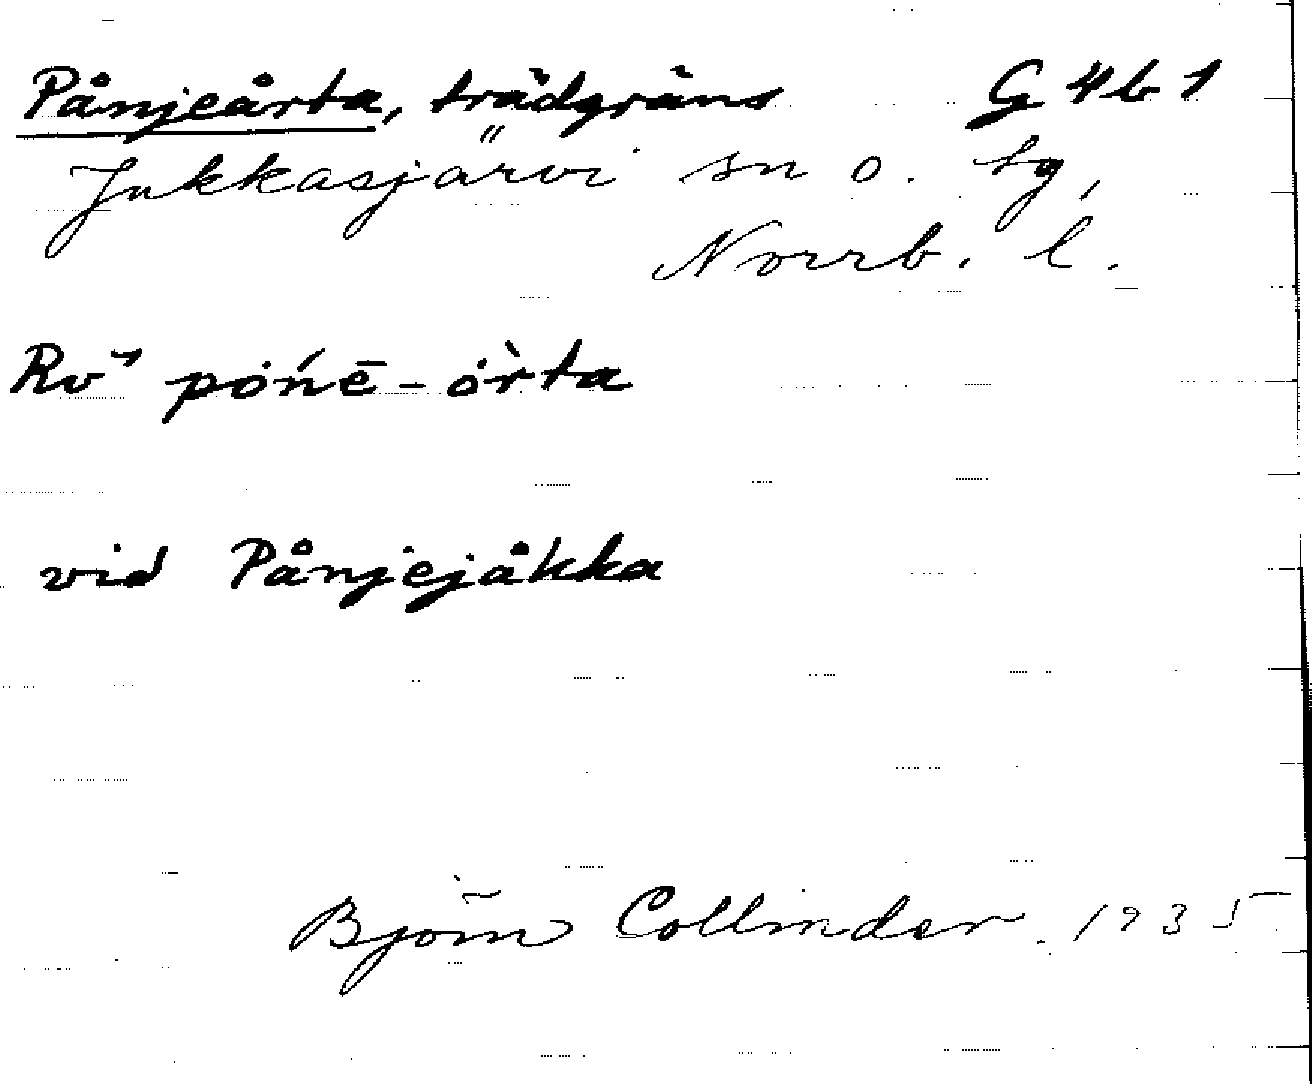 Pånjeårta, trädgräns G 4b 1
Jukkasjärvi sn o. tg,
Norrb. l.
Rv⁾ pȯńē-ȯ̀rta
vid Pånjejåkka
Björn Collinder. 1935